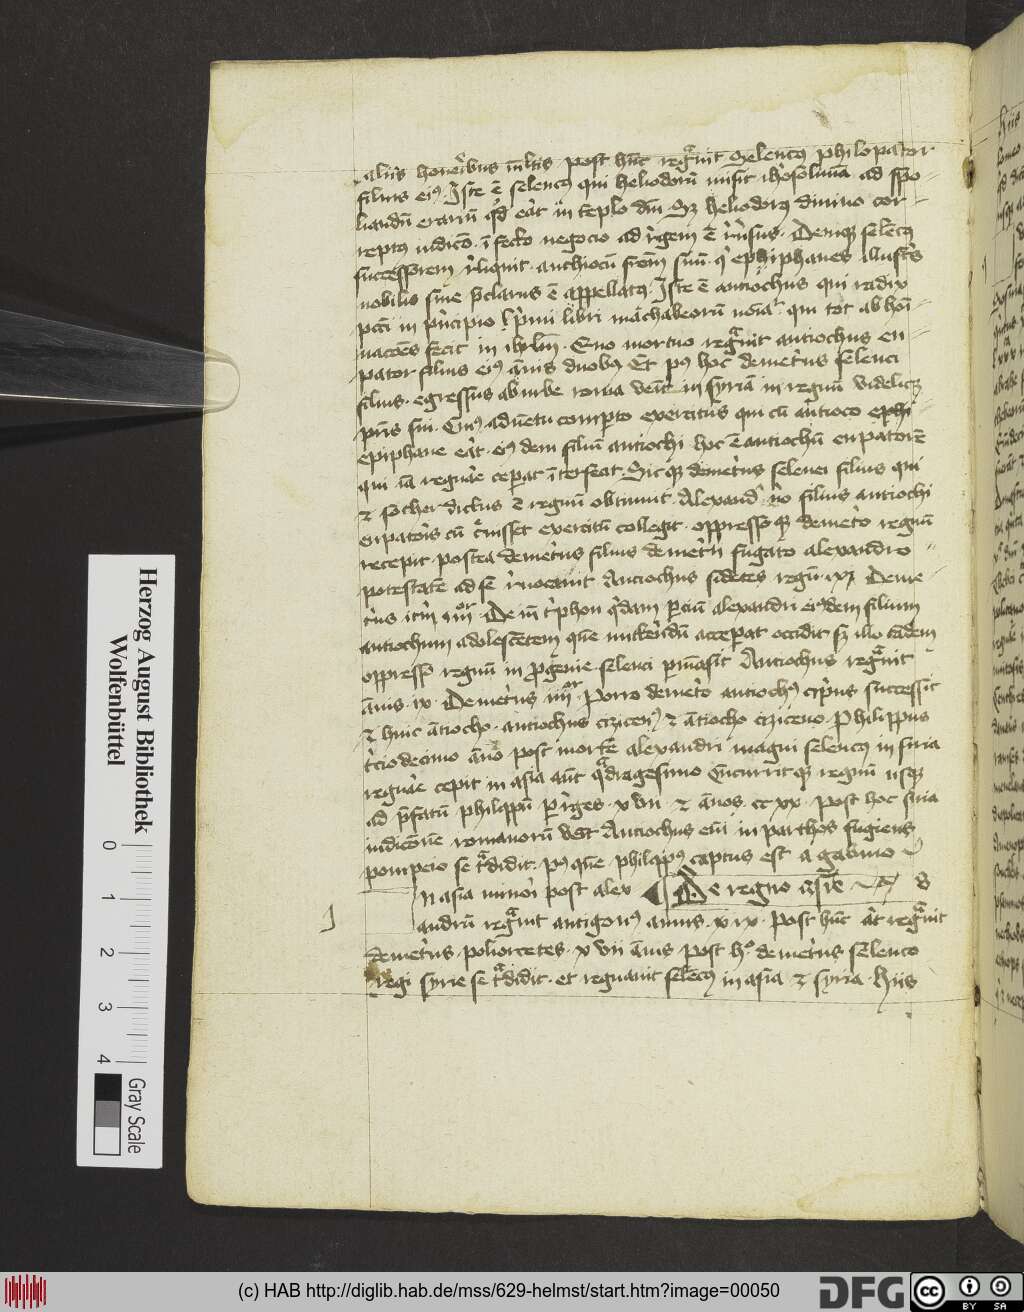 aliis honoribus multis post hunc regnavit Selencus philopator
filius eius Iste est selencus qui heliodorum misit iherosolimam ad spo
liandum erarium quod erat in templo dei Sed heliodorus divino cor
reptus iudicio infecto negocio ad regem est reversus. Denique selencus
successorem reliquit anthiocum fratrem suum qui ephiphanes illustris
nobilis sive preclarus est appellatus. Iste est antiochus qui radix
peccati in principio primi libri machabeorum nominatur qui tot abhomi
naciones fecit in iherusalem. Quo mortuo regnavit antiochus eu
pator filius eius annis duobus Et post hoc demetrius selenci
filius egressus ab urbe roma venit in syriam in regnum videlicet
patris sui. Cuius adventu comperto exercitus qui cum antioco ephi
epiphane erat eius dem filium antiochi hoc est antiochum eupatorem
qui iam regnare ceperat interfecit. Sicque demetrius selenci filius qui
et sother dictus est regnum obtinuit. Alexander vero filius antiochi
eupatoris cum crevisset exercitum collegit oppressoque demetrio regnum
recepit postea demetrius filius demetrii fugato alexandro
potestatem ad se revocavit Antiochus sidetes regnum ix Deme
trius iterum iiii Deinde triphon quidam alexandri eiusdem filium
antiochum adolescentem quem nutriendum acceperat occidit sed illo eciam
oppresso regnum in progenie selenci permansit Antiochus regnavit
annis ix Demetrius iiii Porro demetrio antiochus cipius successit
et huic antiocho antiochus cizicenus et antiocho ciziceno Philippus
tercio decimo anno post mortem alexandri magni selencus in siria
regnare cepit in asia autem quadragesimo Concurritque regnum usque
ad prefatum philippum per reges xvii et annos ccxx Post hoc siria
indicionem romanorum venit Antiochus enim in parthos fugiens
pompeio se tradidit postque philippus captus est a gabinio
In asia minori post alex De regno asie
andrum regnavit antigonus annis xix Post hunc autem regnavit
demetrius poliorcetes xvii annis post hoc demetrius selenco
regi syrie se tradidit et regnavit selencus in asia et syria Hiis
Herzog August Bibliothek
Wolfenbüttel
0 1 2 3 4
Gray Scale
(c) HAB http://diglib.hab.de/mss/629-helmst/start.htm?image=00050
DFG
CC BY SA